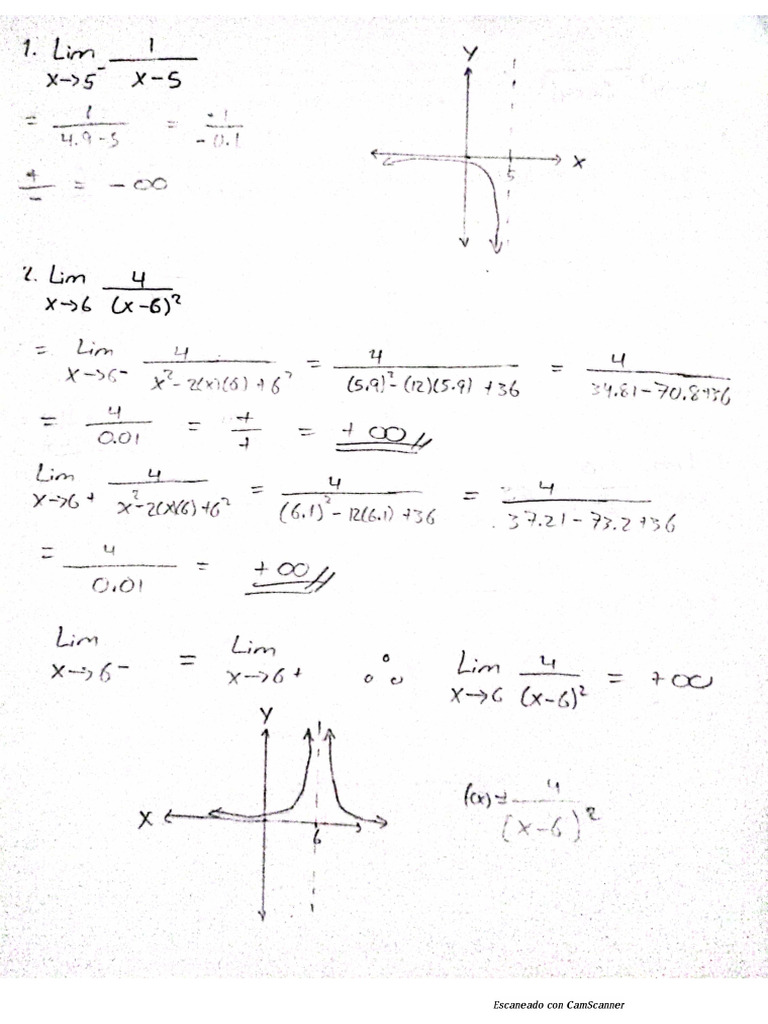 1. Lim 1/(x-5)
x→5⁻
= 1/(4.9-5) = 1/(-0.1)
+/- = -∞
Y
X
5
2. Lim 4/(x-6)²
x→6
= Lim x→6⁻ 4/(x²-2(x)(6)+6²) = 4/((5.9)²-(12)(5.9)+36) = 4/(34.81-70.8+36)
= 4/0.01 = +/+ = +∞
Lim x→6+ 4/(x²-2(x)(6)+6²) = 4/((6.1)²-12(6.1)+36) = 4/(37.21-73.2+36)
= 4/0.01 = +∞
Lim x→6⁻ = Lim x→6+ ∴ Lim x→6 4/(x-6)² = +∞
Y
X
6
f(x)= 4/(x-6)²
Escaneado con CamScanner